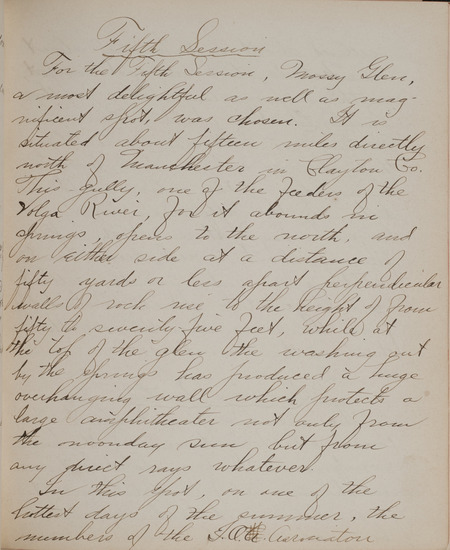 Fifth Session
For the Fifth Session, Mossy Glen,
a most delightful as well as mag-
nificent spot, was chosen. It is
situated about fifteen miles directly
north of Manchester in Clayton Co.
This gully, one of the feeders of the
Volga River, for it abounds in
springs, opens to the north, and
on either side at a distance of
fifty yards or less apart perpendicular
walls of rock rise to the height of from
fifty to seventy-five feet, while at
the top of the glen the washing out
by the springs has produced a huge
overhanging wall which protects a
large amphitheater not only from
the noonday sun but from
any direct rays whatever.
In this spot, on one of the
hottest days of the summer, the
members of the Association